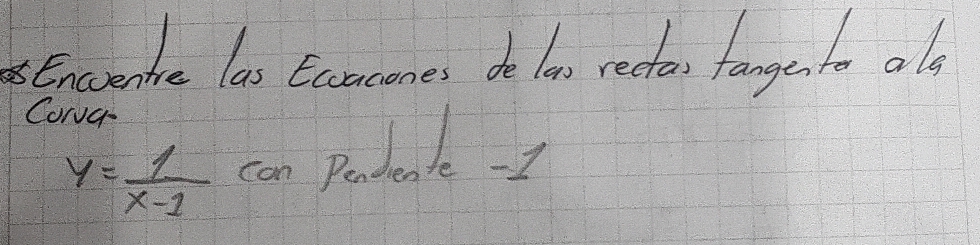 Encuentre las Ecuaciones de las rectas tangente a la
Curva
y = 1/(x-1) con Pendiente -1